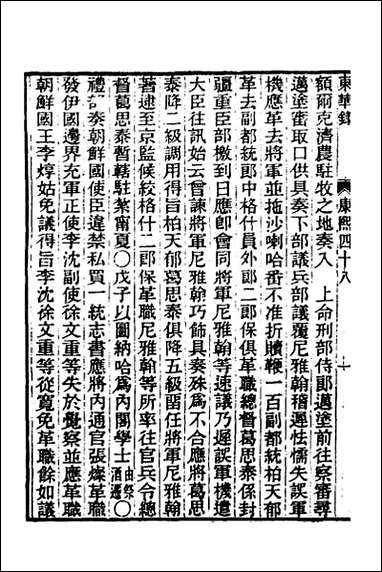 東華錄　康熙四十八　十
額爾克濟農駐牧之地奏入　上命刑部侍郎邁塗前往察審尋
邁塗審取口供具奏下部議兵部議覆尼雅翰稽遲怯懦失誤軍
機應革去將軍並拖沙喇哈番不准折贖鞭一百副都統柏天郁
革去副都統郎中格什員外郎二郎保俱革職總督葛思泰係封
疆重臣部檄到日應卽會同將軍尼雅翰等速議乃遲誤軍機遣
大臣往訊始云曾諫將軍尼雅翰巧飾具奏殊爲不合應將葛思
泰降二級調用得旨柏天郁葛思泰俱降五級畱任將軍尼雅翰
著逮至京監候絞格什二郎保革職尼雅翰等所率往官兵令總
督葛思泰暫轄駐紮甯夏〇戊子以圖納哈爲內閣學士由祭酒遷〇
禮部奏朝鮮國使臣違禁私買一統志書應將內通官張燦革職
發伊國邊界充軍正使李沈副使徐文重等失於覺察並應革職
朝鮮國王李焞姑免議得旨李沈徐文重等從寬免革職餘如議